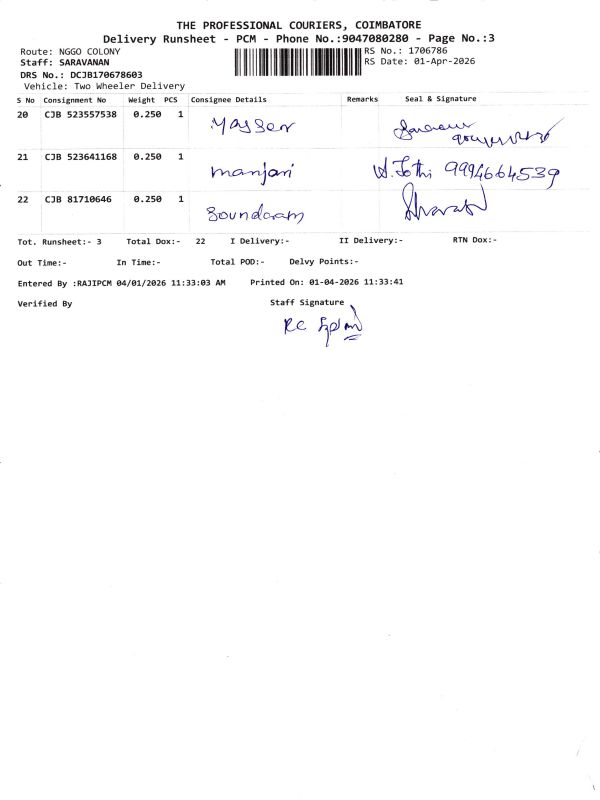 THE PROFESSIONAL COURIERS, COIMBATORE
Delivery Runsheet - PCM - Phone No.:9047080280 - Page No.:3
Route: NGGO COLONY RS No.: 1706786
Staff: SARAVANAN RS Date: 01-Apr-2026
DRS No.: DCJB170678603
Vehicle: Two Wheeler Delivery
S No Consignment No Weight PCS Consignee Details Remarks Seal & Signature
20 CJB 523557538 0.250 1 Yasser
21 CJB 523641168 0.250 1 manjari A. Jothi 9994664539
22 CJB 81710646 0.250 1 Soundaram
Tot. Runsheet:- 3 Total Dox:- 22 I Delivery:- II Delivery:- RTN Dox:-
Out Time:- In Time:- Total POD:- Delvy Points:-
Entered By :RAJIPCM 04/01/2026 11:33:03 AM Printed On: 01-04-2026 11:33:41
Verified By Staff Signature